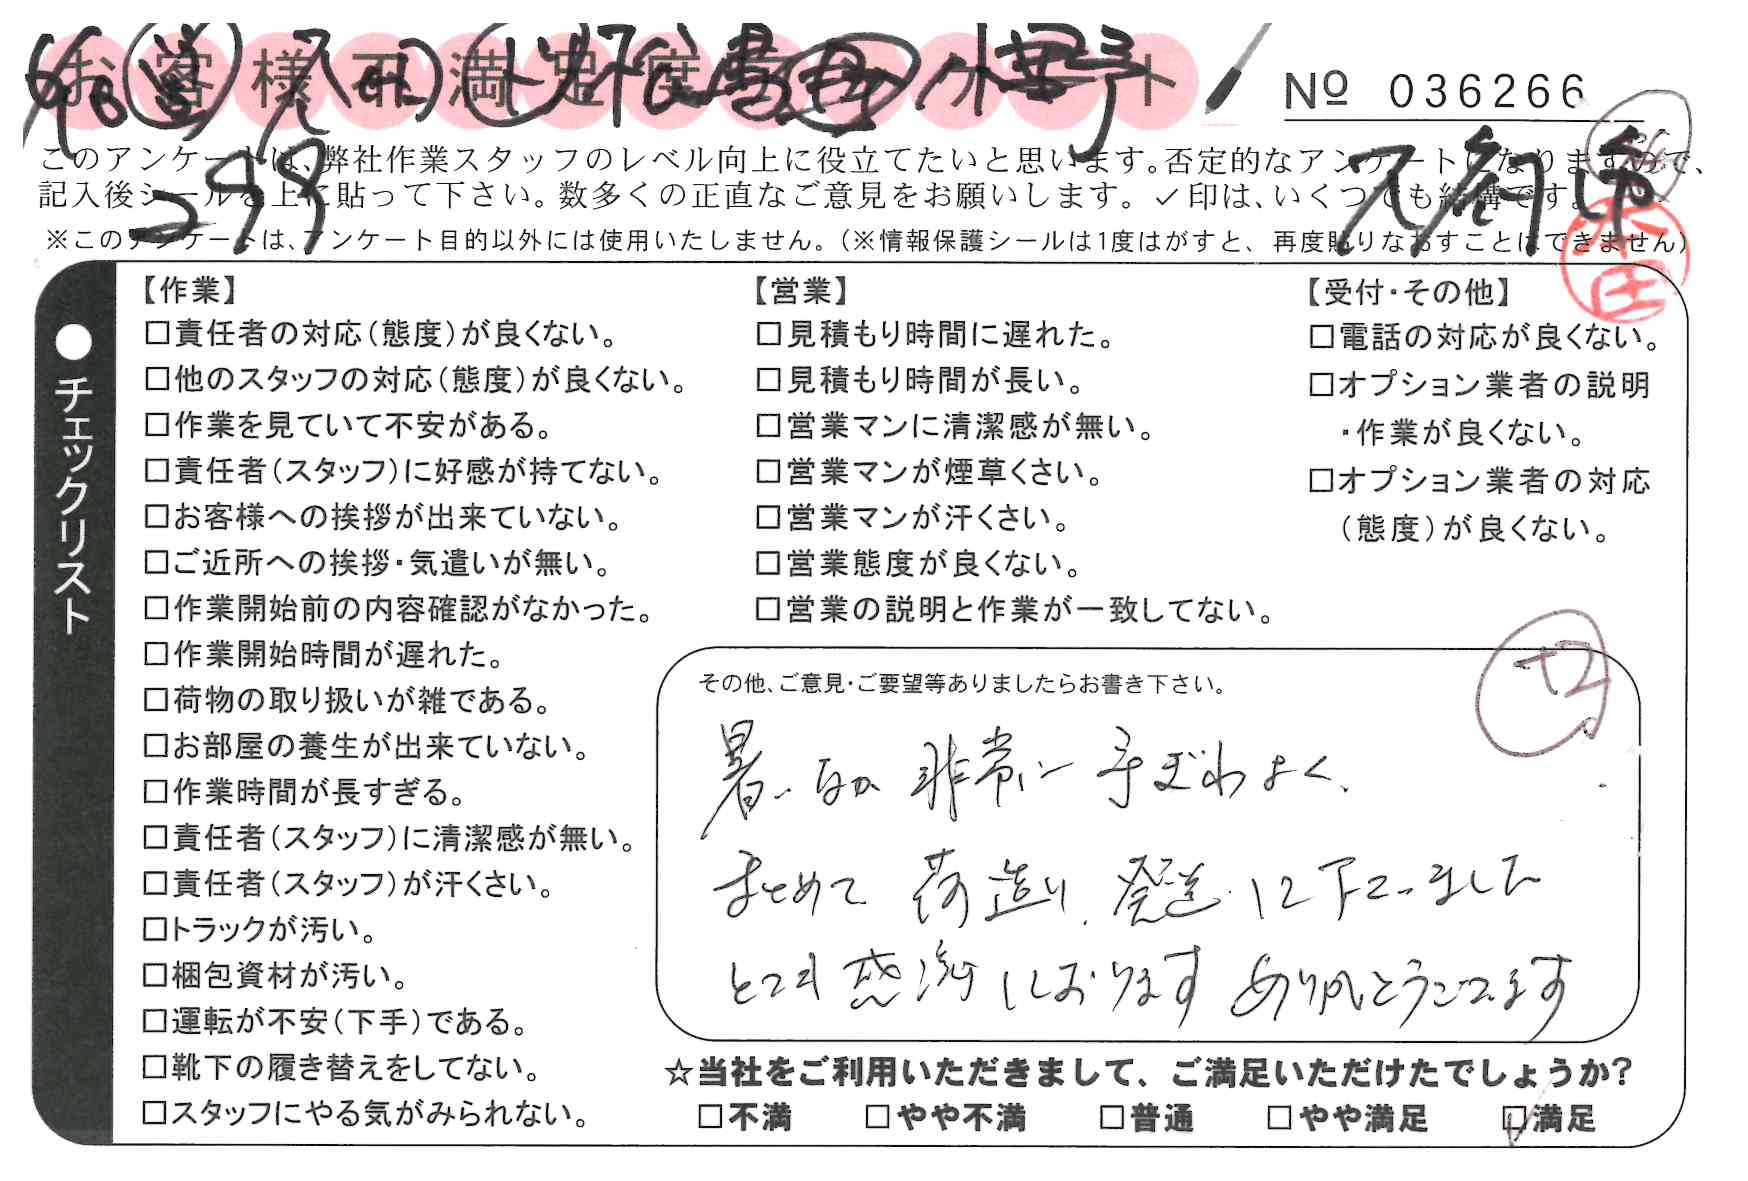 お客様不満足度アンケート
№ 036266
このアンケートは、弊社作業スタッフのレベル向上に役立てたいと思います。否定的なアンケートになりますので、
記入後シールを上に貼って下さい。数多くの正直なご意見をお願いします。✓印は、いくつでも結構です。
※このアンケートは、アンケート目的以外には使用いたしません。（※情報保護シールは1度はがすと、再度貼りなおすことはできません）
299
●チェックリスト
【作業】
□責任者の対応（態度）が良くない。
□他のスタッフの対応（態度）が良くない。
□作業を見ていて不安がある。
□責任者（スタッフ）に好感が持てない。
□お客様への挨拶が出来ていない。
□ご近所への挨拶・気遣いが無い。
□作業開始前の内容確認がなかった。
□作業開始時間が遅れた。
□荷物の取り扱いが雑である。
□お部屋の養生が出来ていない。
□作業時間が長すぎる。
□責任者（スタッフ）に清潔感が無い。
□責任者（スタッフ）が汗くさい。
□トラックが汚い。
□梱包資材が汚い。
□運転が不安（下手）である。
□靴下の履き替えをしてない。
□スタッフにやる気がみられない。
【営業】
□見積もり時間に遅れた。
□見積もり時間が長い。
□営業マンに清潔感が無い。
□営業マンが煙草くさい。
□営業マンが汗くさい。
□営業態度が良くない。
□営業の説明と作業が一致してない。
【受付・その他】
□電話の対応が良くない。
□オプション業者の説明
・作業が良くない。
□オプション業者の対応
（態度）が良くない。
その他、ご意見・ご要望等ありましたらお書き下さい。
暑いなか 非常に 手ぎわよく、
まとめて 荷造り、発送して下さいました
とても感謝しております ありがとうございます
☆当社をご利用いただきまして、ご満足いただけたでしょうか?
□不満 □やや不満 □普通 □やや満足 ☑満足